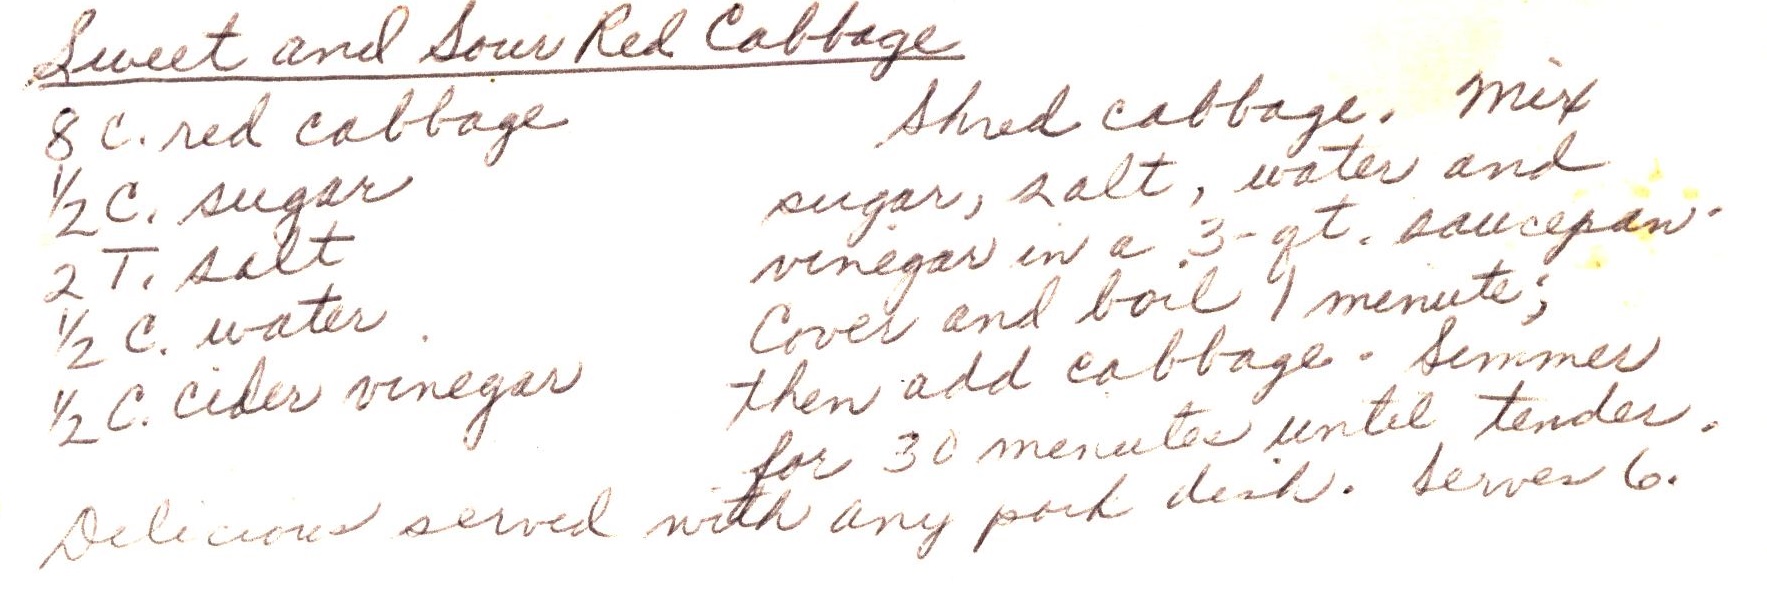 Sweet and Sour Red Cabbage
8 C. red cabbage
1/2 C. sugar
2 T. salt
1/2 C. water
1/2 C. cider vinegar
Shred cabbage. Mix
sugar, salt, water and
vinegar in a 3-qt. saucepan.
Cover and boil 1 minute;
then add cabbage. Simmer
for 30 minutes until tender.
Delicious served with any pork dish. Serves 6.